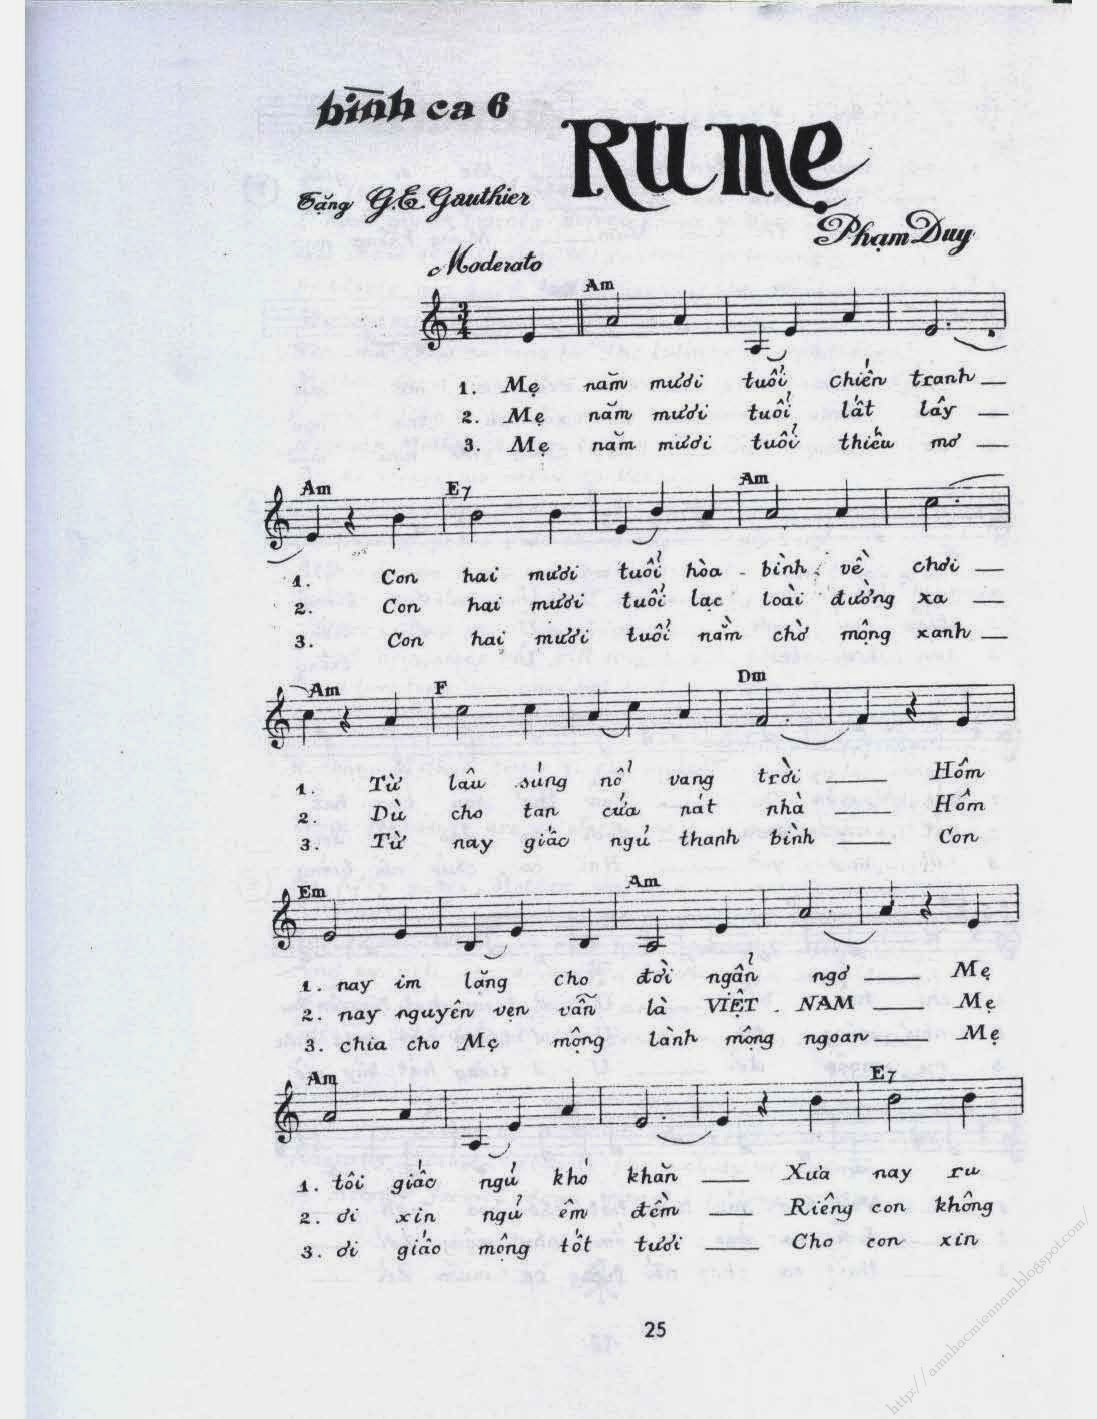 bình ca 6
Ru mẹ
Tặng G.E. Gauthier
Phạm Duy
Moderato
Am
1. Mẹ năm mươi tuổi chiến tranh
2. Mẹ năm mươi tuổi lất lây
3. Mẹ năm mươi tuổi thiếu mơ
Am E7 Am
1. Con hai mươi tuổi hòa - bình về chơi
2. Con hai mươi tuổi lạc loài đường xa
3. Con hai mươi tuổi nằm chờ mộng xanh
Am F Dm
1. Từ lâu súng nổ vang trời Hôm
2. Dù cho tan cửa nát nhà Hôm
3. Từ nay giấc ngủ thanh bình Con
Em Am
1. nay im lặng cho đời ngẩn ngơ Mẹ
2. nay nguyên vẹn vẫn là VIỆT - NAM Mẹ
3. chia cho Mẹ mộng lành mộng ngoan Mẹ
Am E7
1. tôi giấc ngủ khó khăn Xưa nay ru
2. ơi xin ngủ êm đềm Riêng con không
3. ơi giấc mộng tốt tươi Cho con xin
25
http://amnhacmiennam.blogspot.com/